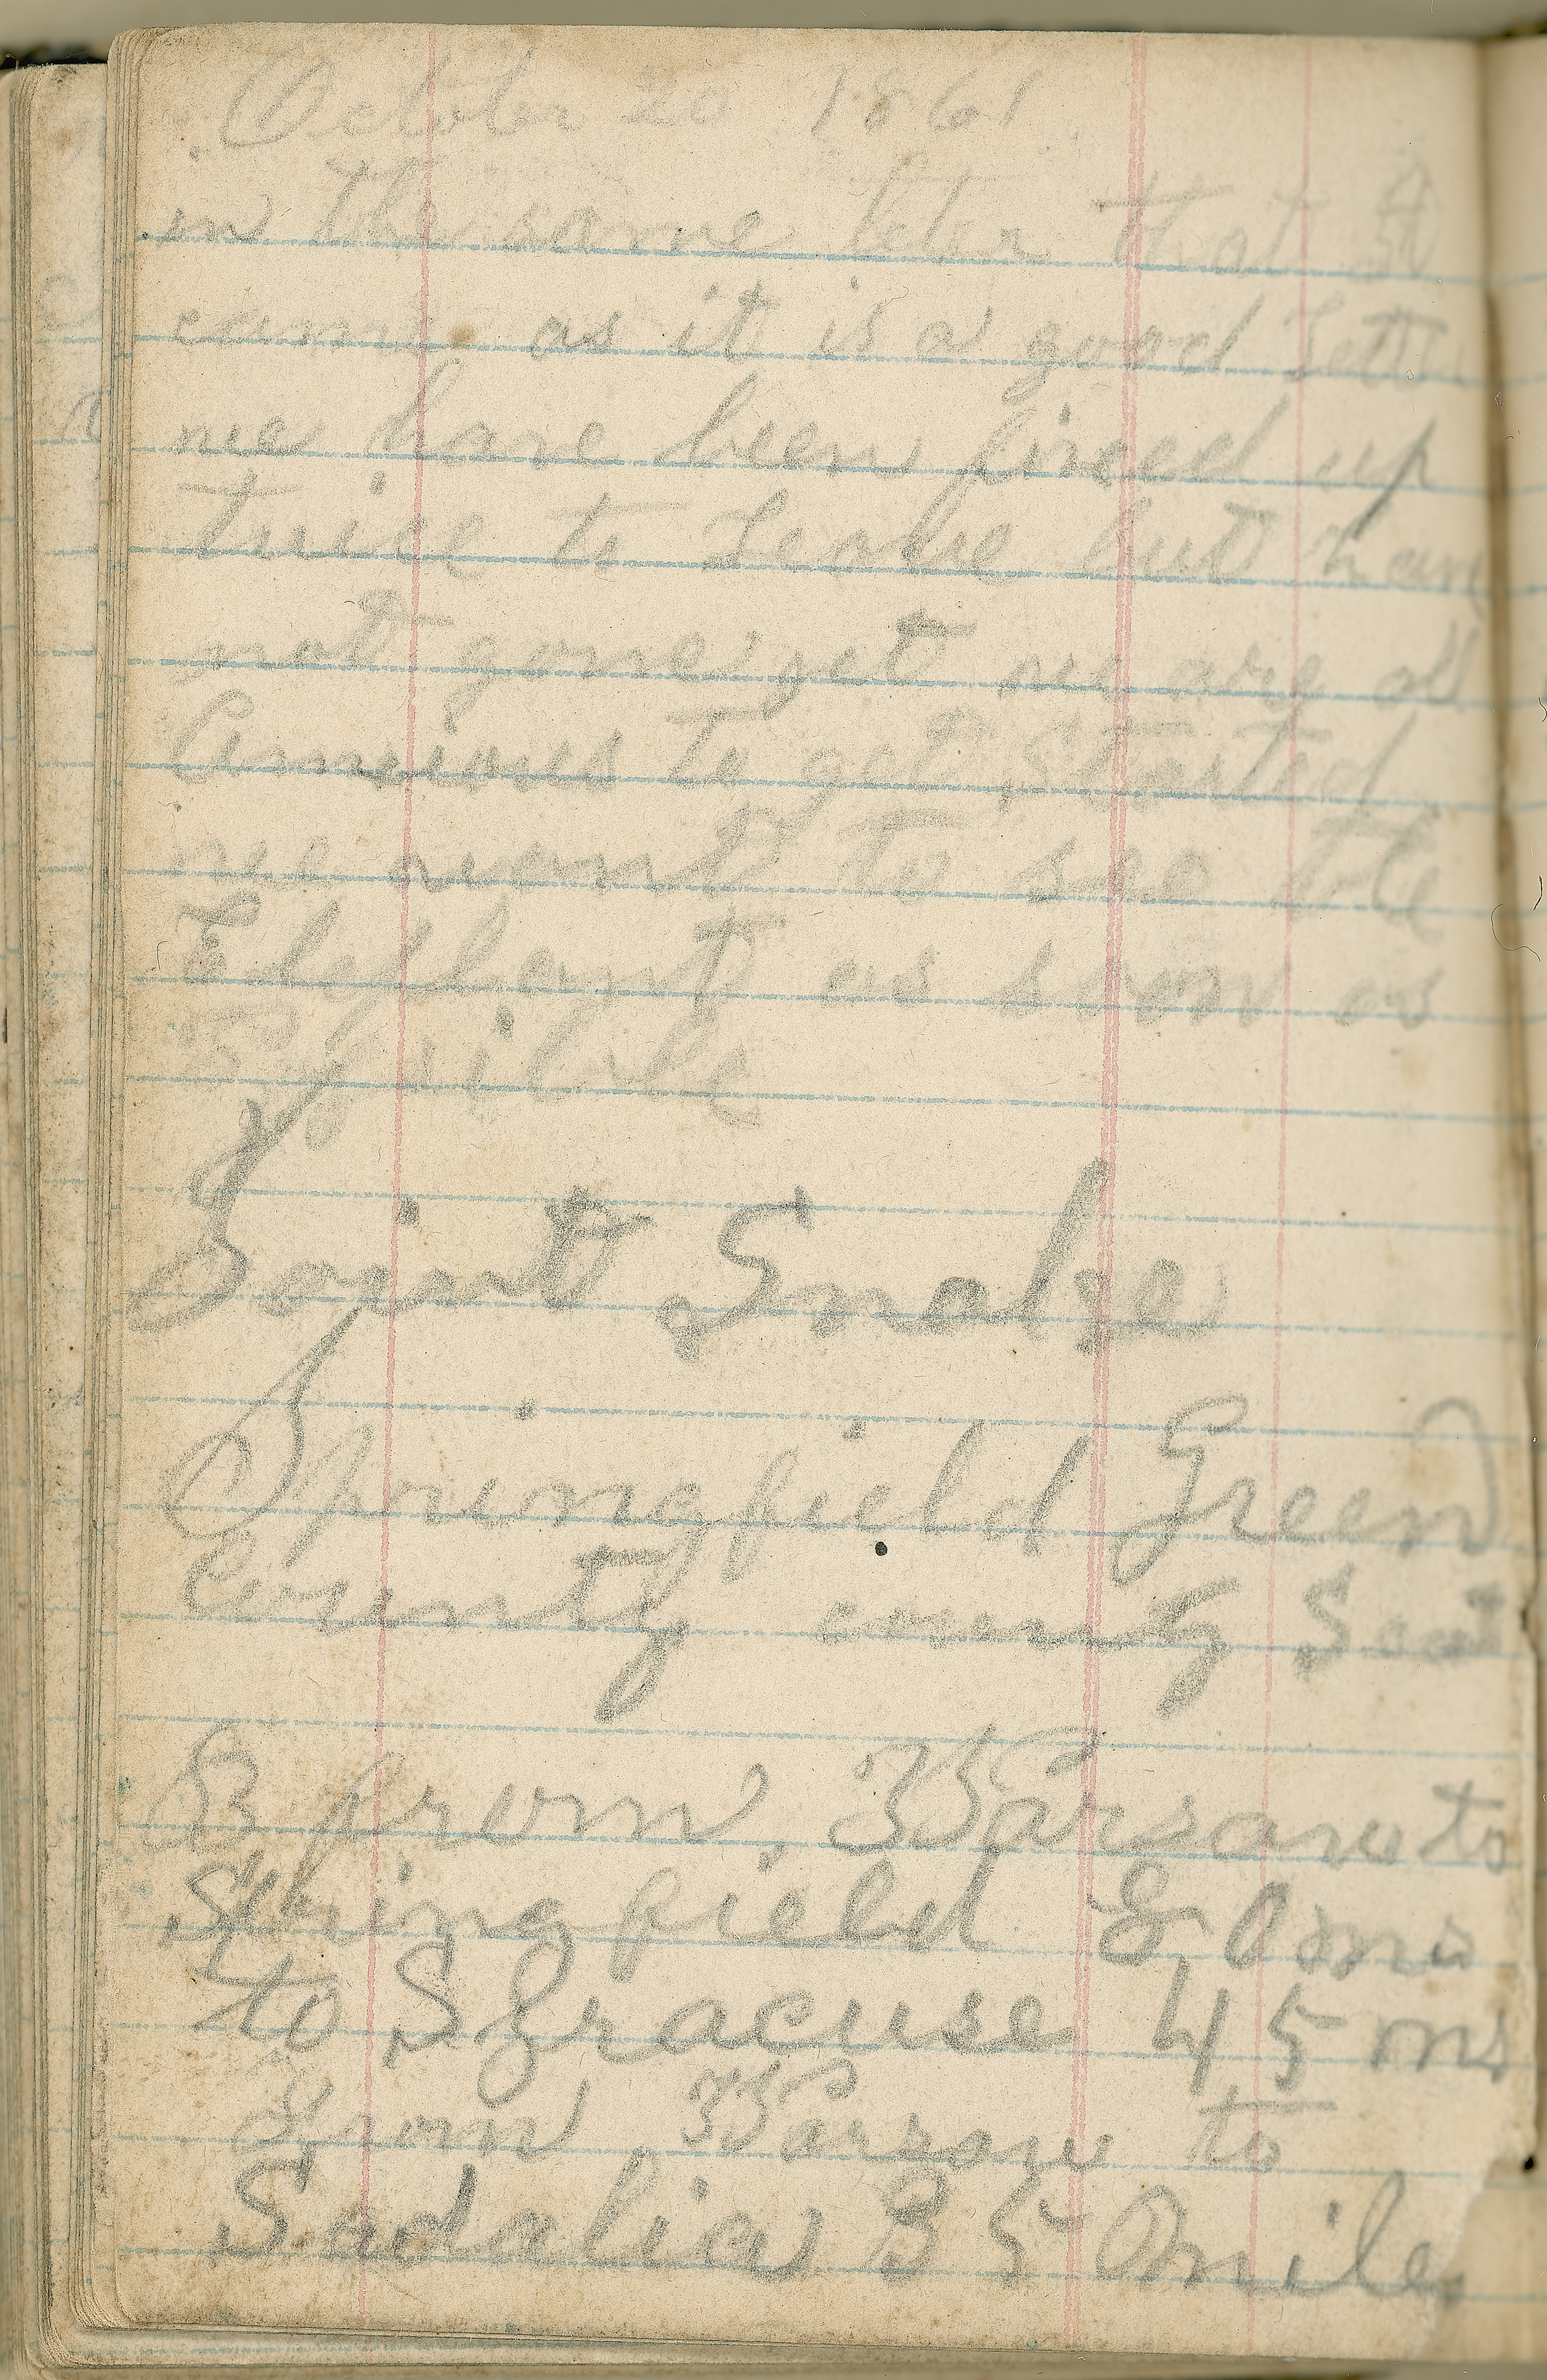 October 20 1861
in the same letter that A
came as it is a good Letter
we have been fined up
twice to Leave but have
not gone yet we are all
Anxious to get Started
we want to see the
Elephant as soon as
Posible
Saint Snake
Springfield Green
County county Seat
from Warsaw to
Springfield 80 ms
to Syracuse 45 ms
From Warsaw to
Sadalia 35 miles